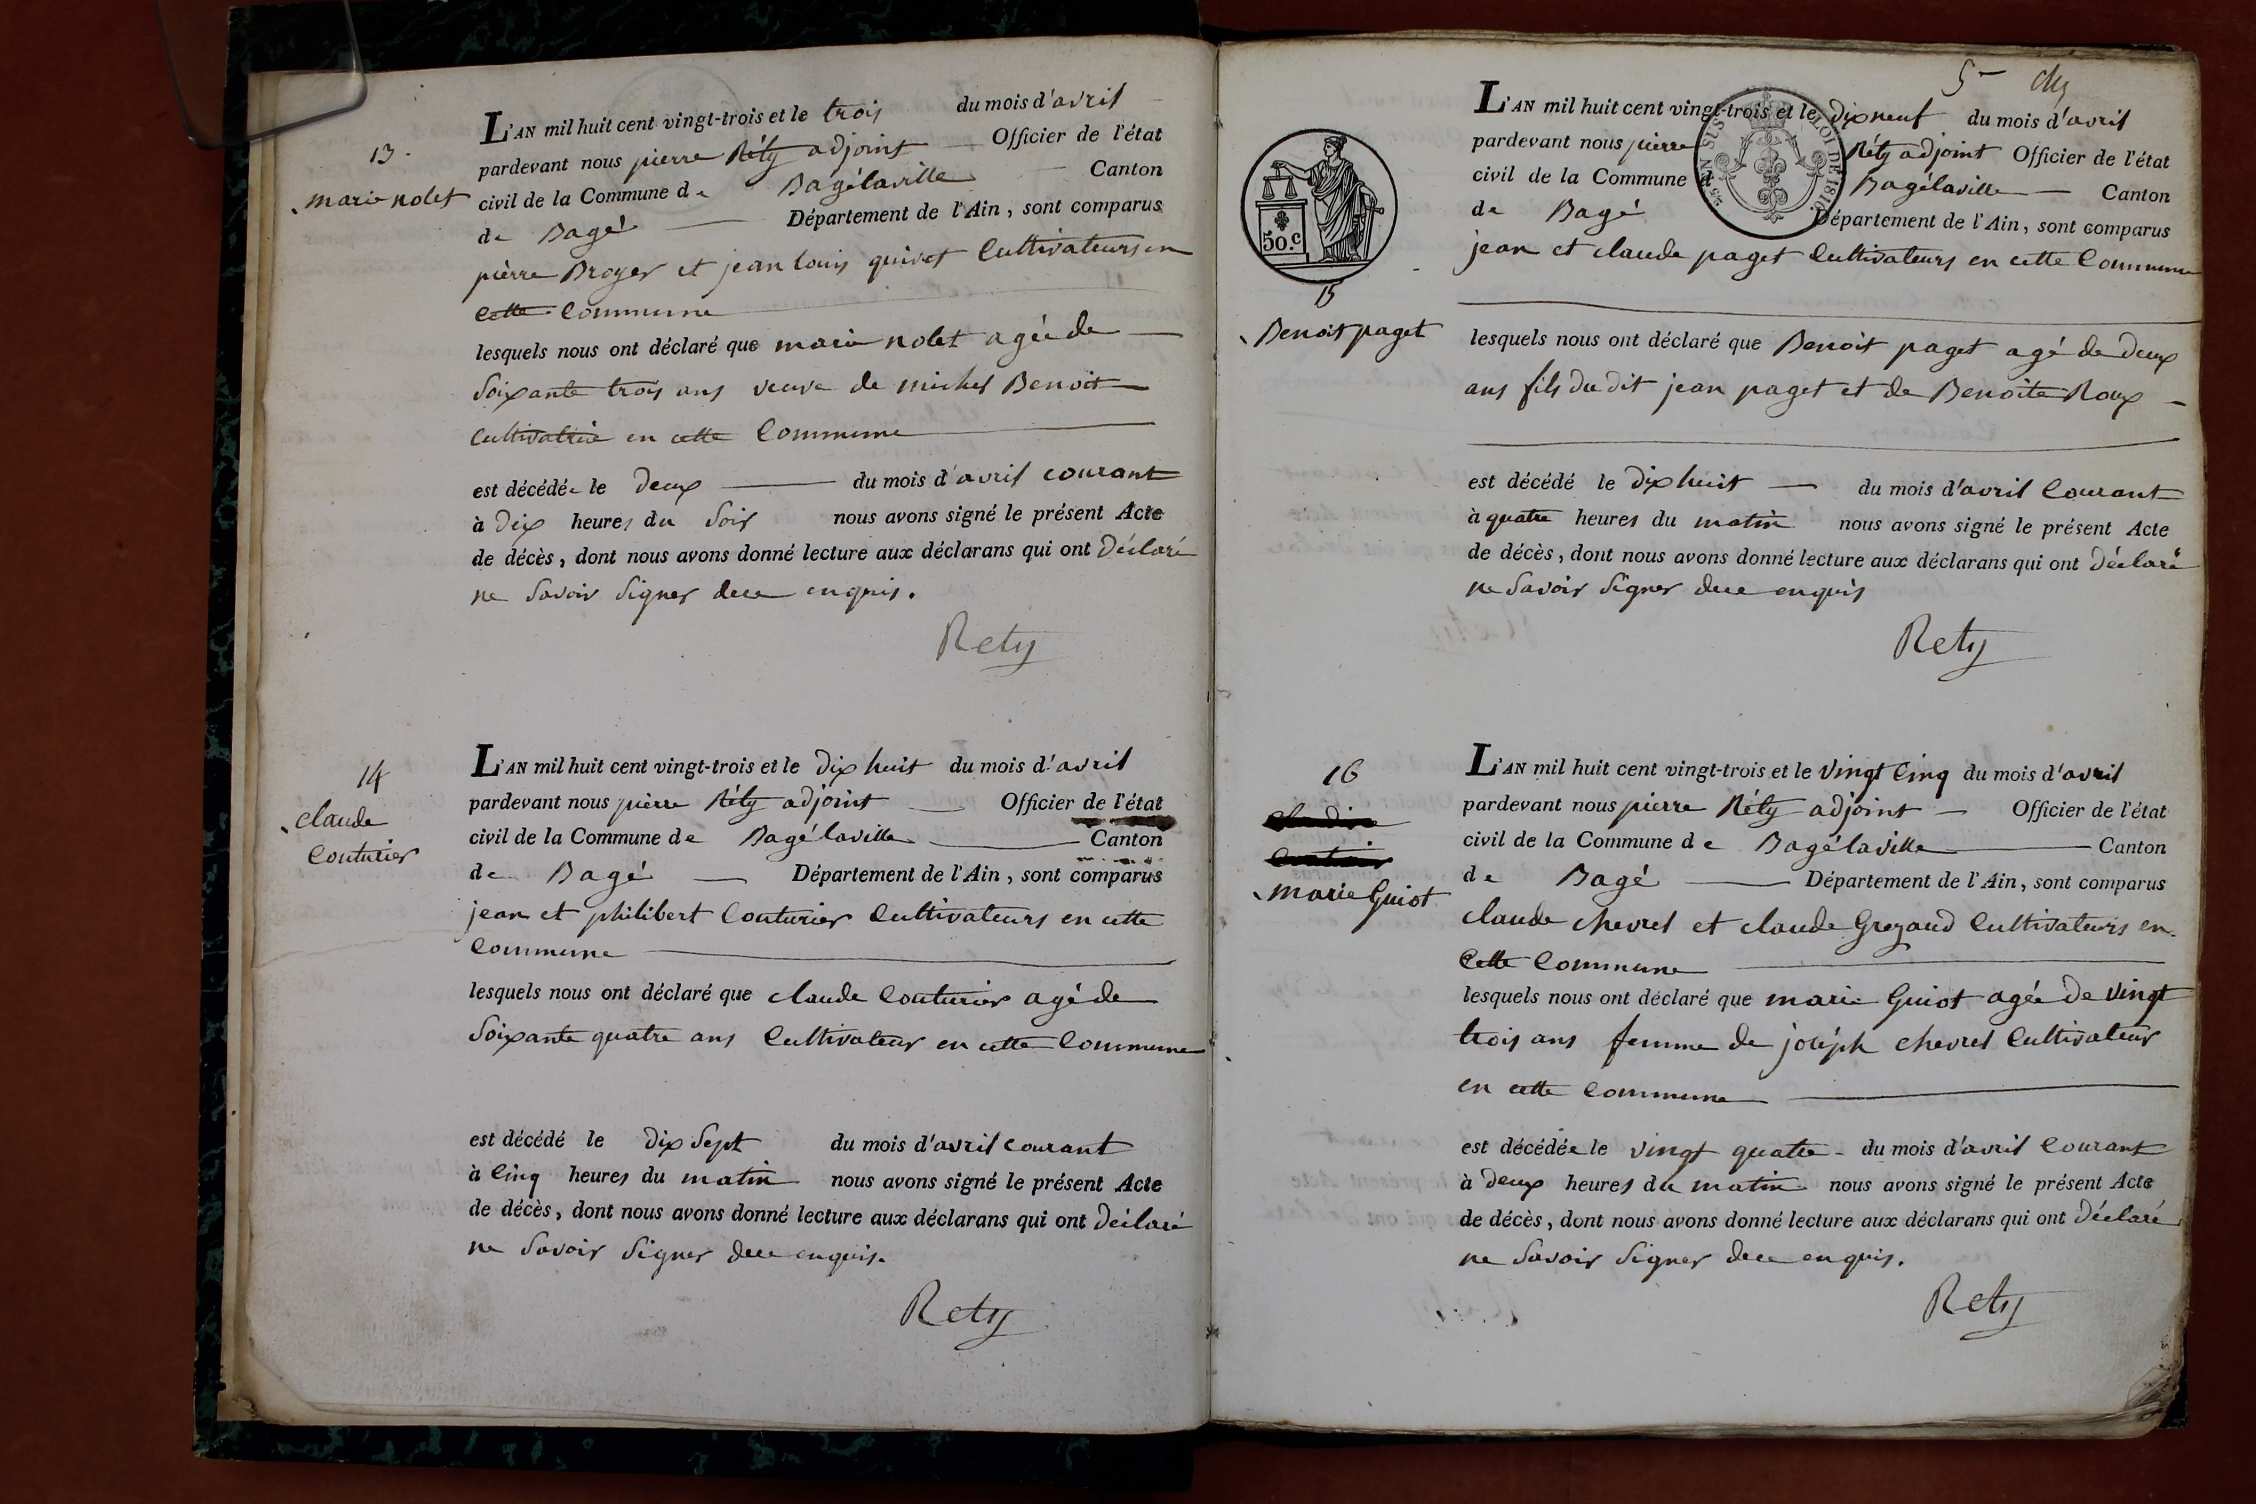 13.
marie nolet
L'AN mil huit cent vingt-trois et le trois du mois d'avril
pardevant nous pierre Réty adjoint Officier de l'état
civil de la Commune de Bagélaville Canton
de Bagé Département de l'Ain, sont comparus
pierre Broyer et jean louis quivet Cultivateurs en
cette Commune
lesquels nous ont déclaré que marie nolet agée de
Soixante trois ans veuve de michel Benoit
Cultivatrice en cette Commune
est décédée le Deux du mois d'avril courant
à Dix heures du Soir nous avons signé le présent Acte
de décès, dont nous avons donné lecture aux déclarans qui ont Déclaré
ne Savoir Signer de ce enquis.
Rety
14
claude
Couturier
L'AN mil huit cent vingt-trois et le Dix huit du mois d'avril
pardevant nous pierre Réty adjoint Officier de l'état
civil de la Commune de Bagélaville Canton
de Bagé Département de l'Ain, sont comparus
jean et philibert Couturier Cultivateurs en cette
Commune
lesquels nous ont déclaré que claude Couturier agé de
Soixante quatre ans Cultivateur en cette Commune
est décédé le Dix Sept du mois d'avril courant
à Cinq heures du matin nous avons signé le présent Acte
de décès, dont nous avons donné lecture aux déclarans qui ont Déclaré
ne Savoir Signer de ce enquis.
Rety
5
50.c
LOI DE 1816.
15
Benoit paget
L'AN mil huit cent vingt-trois et le Dix neuf du mois d'avril
pardevant nous pierre Réty adjoint Officier de l'état
civil de la Commune d Bagélaville Canton
de Bagé Département de l'Ain, sont comparus
jean et claude paget Cultivateurs en cette Commune
lesquels nous ont déclaré que Benoit paget agé de Deux
ans fils du dit jean paget et de Benoite Roux
est décédé le Dix huit du mois d'avril Courant
à quatre heures du matin nous avons signé le présent Acte
de décès, dont nous avons donné lecture aux déclarans qui ont Déclaré
ne Savoir Signer de ce enquis
Rety
16
marie Guiot
L'AN mil huit cent vingt-trois et le vingt Cinq du mois d'avril
pardevant nous pierre Réty adjoint Officier de l'état
civil de la Commune de Bagélaville Canton
de Bagé Département de l'Ain, sont comparus
claude chevrel et claude Greyaud Cultivateurs en
Cette Commune
lesquels nous ont déclaré que marie Guiot agée De vingt
trois ans femme de joseph chevrel Cultivateur
en cette Commune
est décédée le vingt quatre du mois d'avril Courant
à Deux heures du matin nous avons signé le présent Acte
de décès, dont nous avons donné lecture aux déclarans qui ont Déclaré
ne Savoir Signer de ce enquis.
Rety